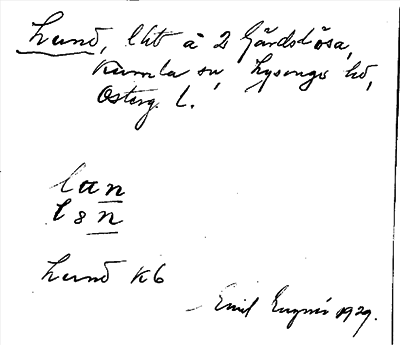 Lund, lht å 2 Gärdslösa,
Kumla sn, Lysings hd,
Österg. L.
lun
l8n
Lund K6
Emil 1929.